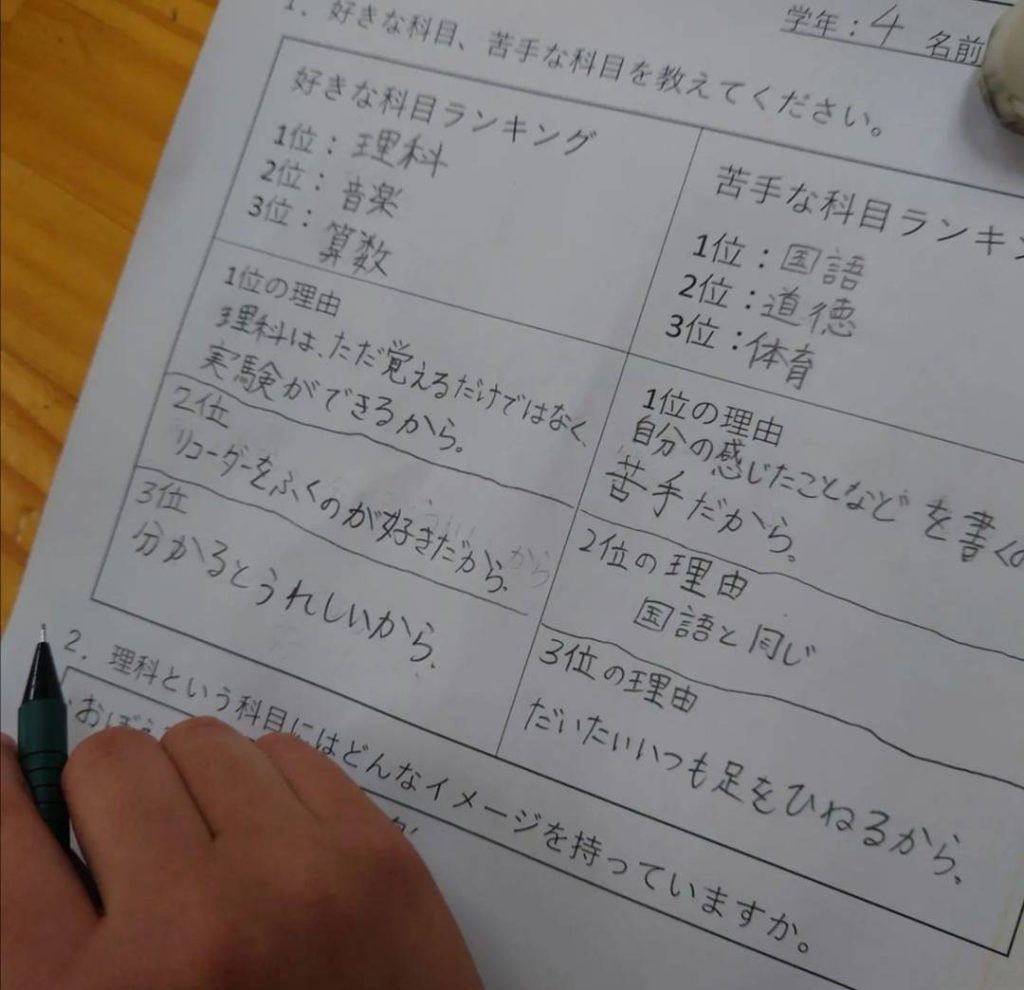 学年：4 名前
1．好きな科目、苦手な科目を教えてください。
好きな科目ランキング
1位：理科
2位：音楽
3位：算数
1位の理由
理科は、ただ覚えるだけではなく、
実験ができるから。
2位
リコーダーをふくのが好きだから。
3位
分かるとうれしいから。
苦手な科目ランキン
1位：国語
2位：道徳
3位：体育
1位の理由
自分の感じたことなどを書くの
苦手だから。
2位の理由
国語と同じ
3位の理由
だいたいいつも足をひねるから。
2．理科という科目にはどんなイメージを持っていますか。
・おぼえ